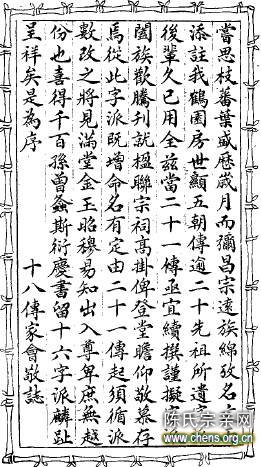 嘗思枝蕃葉盛歷歲月而彌昌宗遠族綿攷名
添註我鶴園房世顯五朝傳逾二十先祖所遺字
後輩久已用全茲當二十一傳亟宜續撰謹擬
闔族歡騰刊就楹聯宗祠高掛俾登堂瞻仰敬慕存
焉從此字派既增命名有定由二十一傳起須循派
數改之將見滿堂金玉昭穆易知出入尊卑庶無越
份也喜得千百孫曾螽斯衍慶書留十六字派麟趾
呈祥矣是為序
十八傳家會敬誌
陈氏宗亲网
www.chens.org.cn